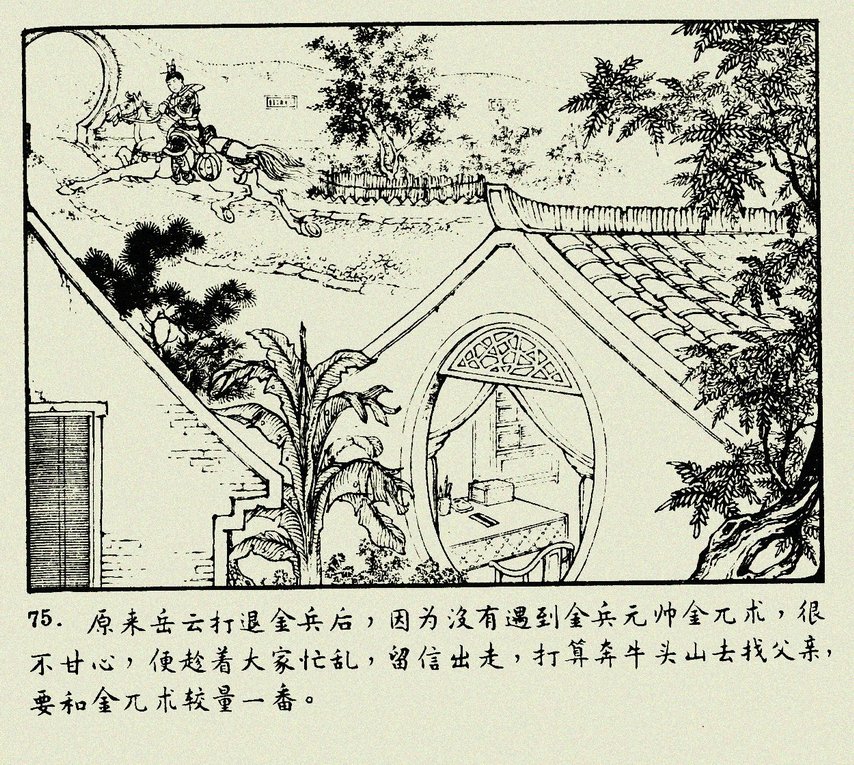 75. 原来岳云打退金兵后，因为没有遇到金兵元帅金兀术，很
不甘心，便趁着大家忙乱，留信出走，打算奔牛头山去找父亲，
要和金兀术较量一番。